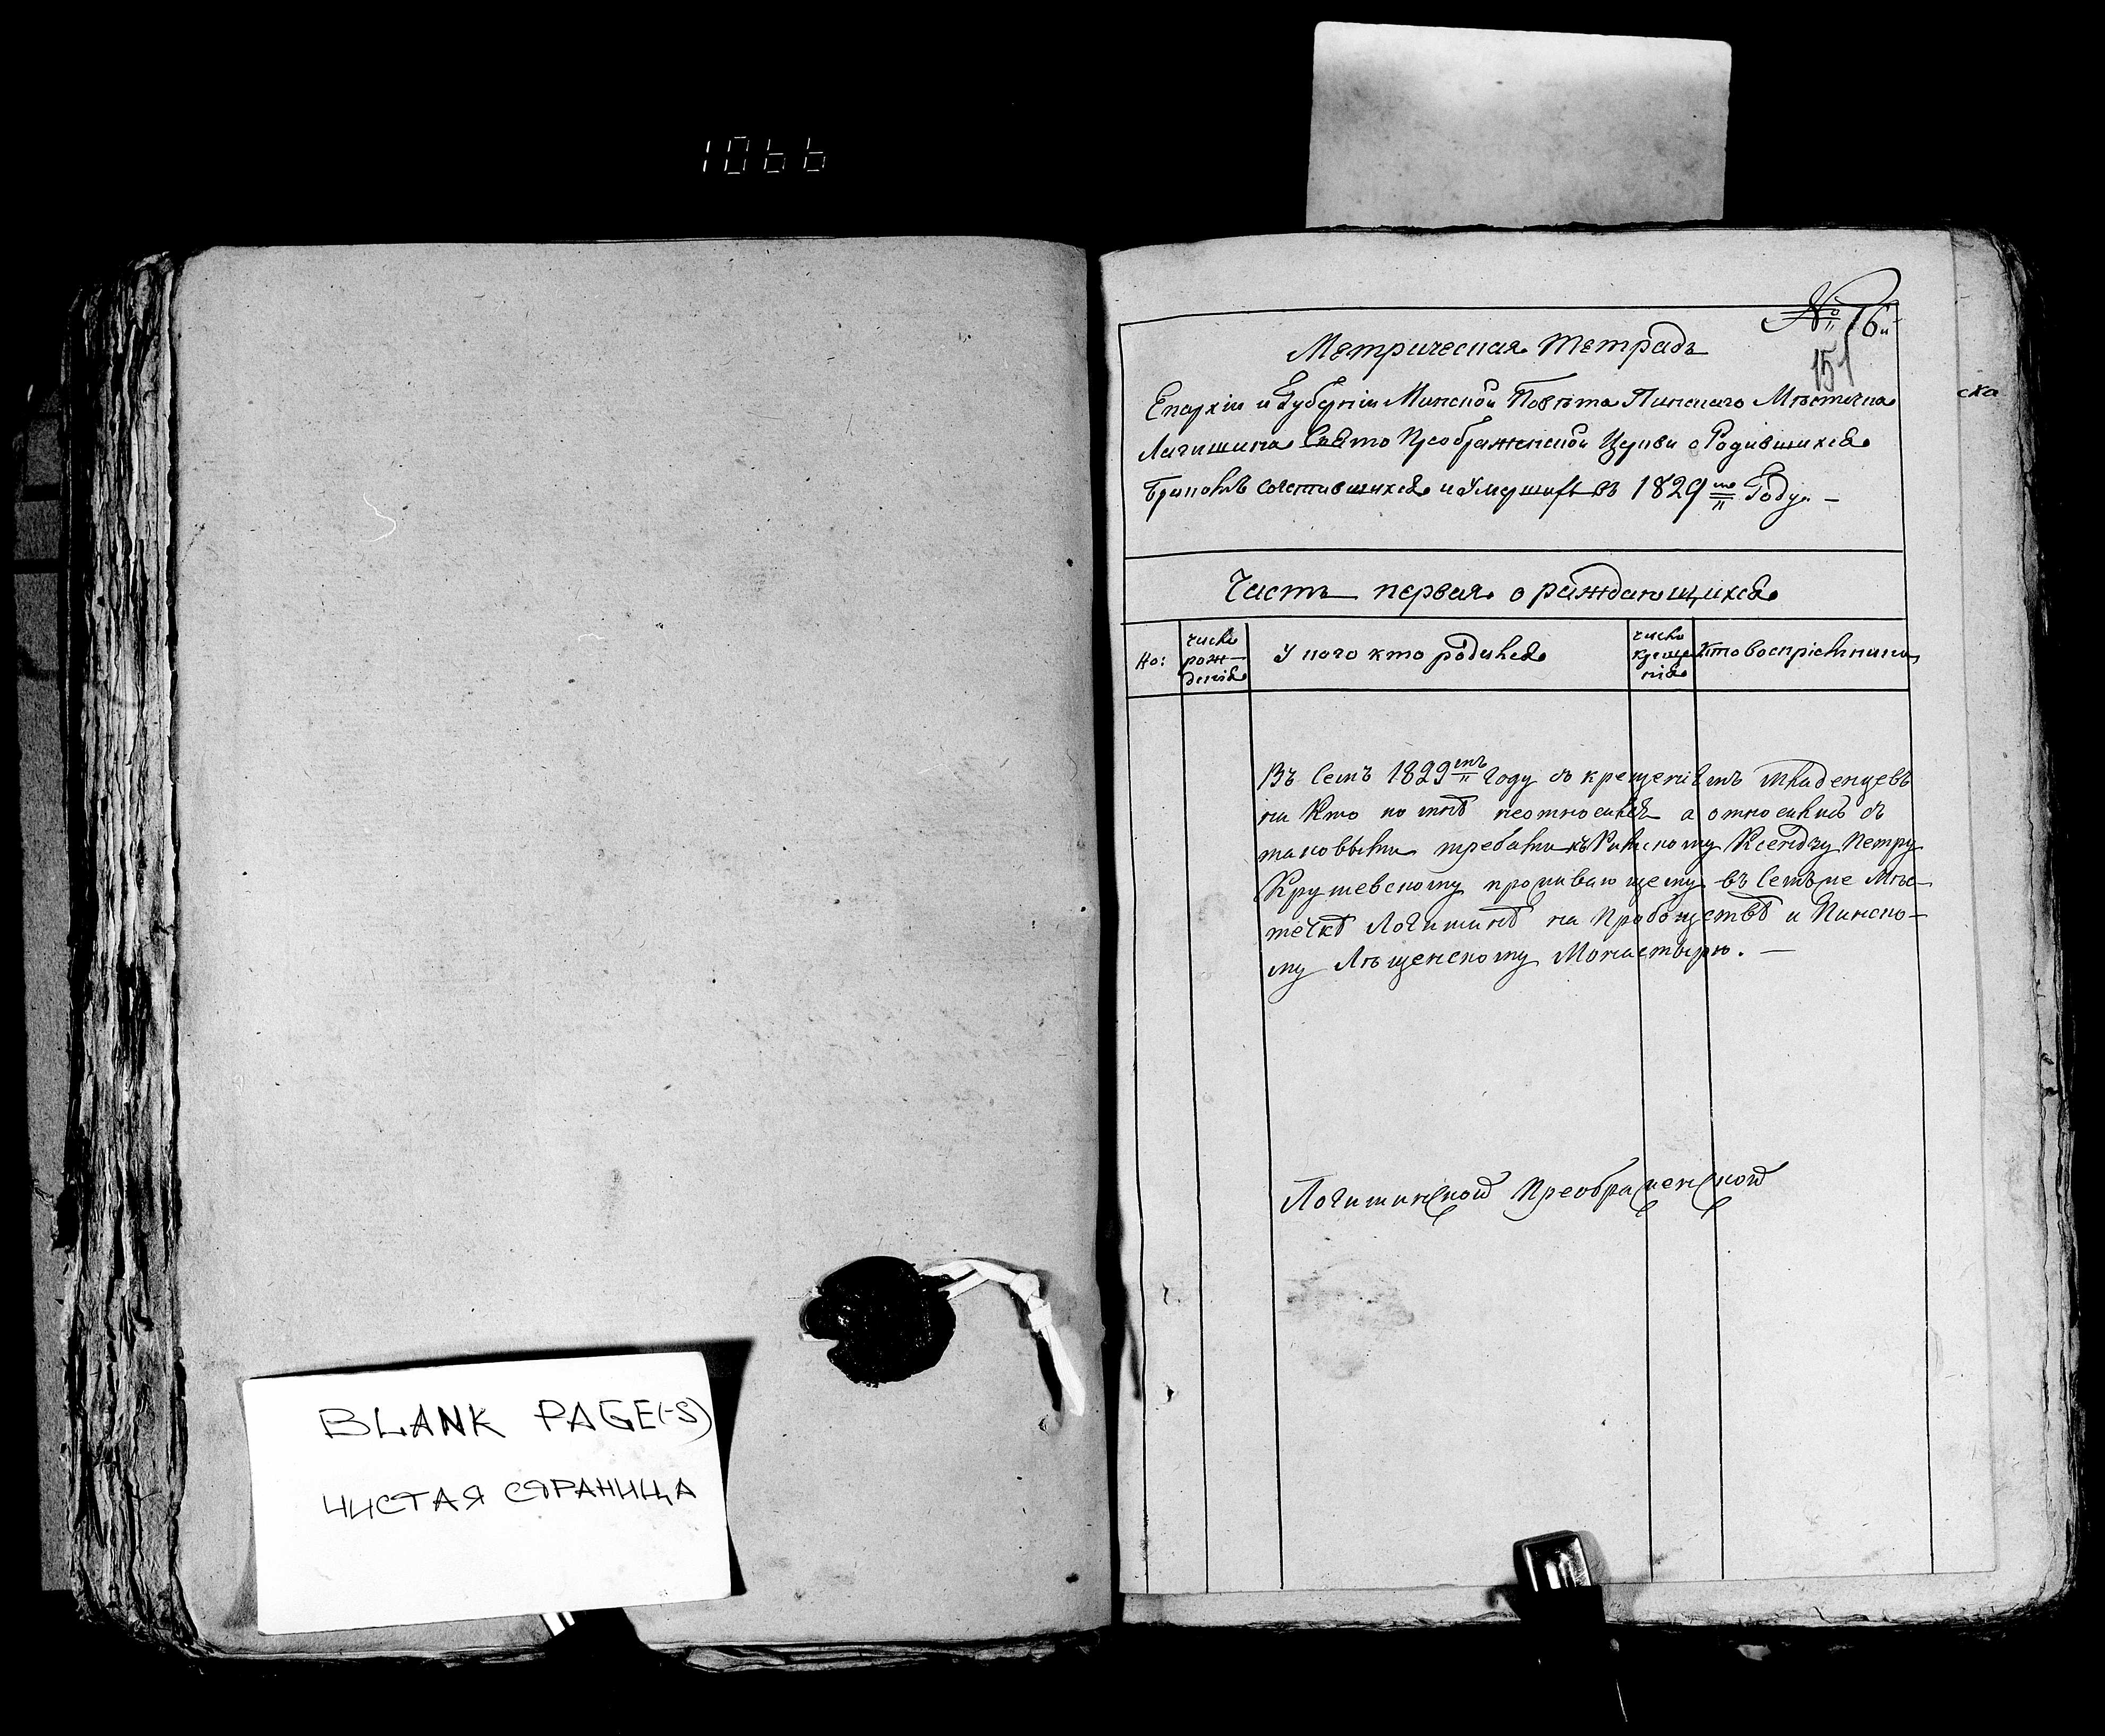 1066
BLANK PAGE(-S)
ЧИСТАЯ СТРАНИЦА
№ 16й
151
Метрическая тетрадь
Епархіи и Губерніи Минской Повѣта Пинскаго Мѣстечка
Лагишина Свято Преображенской Церкви о Родившихся
Браконъ сочетавшихся и Умерших въ 1829мъ Году. —
ска
Часть первая о раждающихся
Но:
число рож-денія
У кого кто родился
число крещенія
кто воспріемники
Въ семъ 1829мъ году съ крещеніемъ младенцевъ
ни кто ко мнѣ неотносился а относились съ
таковыми требами къ Римскому Ксендзу Петру
Крушевскому проживающему въ семъ же Мѣс-
течкѣ Логишинѣ на Пробощствѣ и Пинско-
му Лѣщенскому Монастырю. —
Логишинской Преображенской